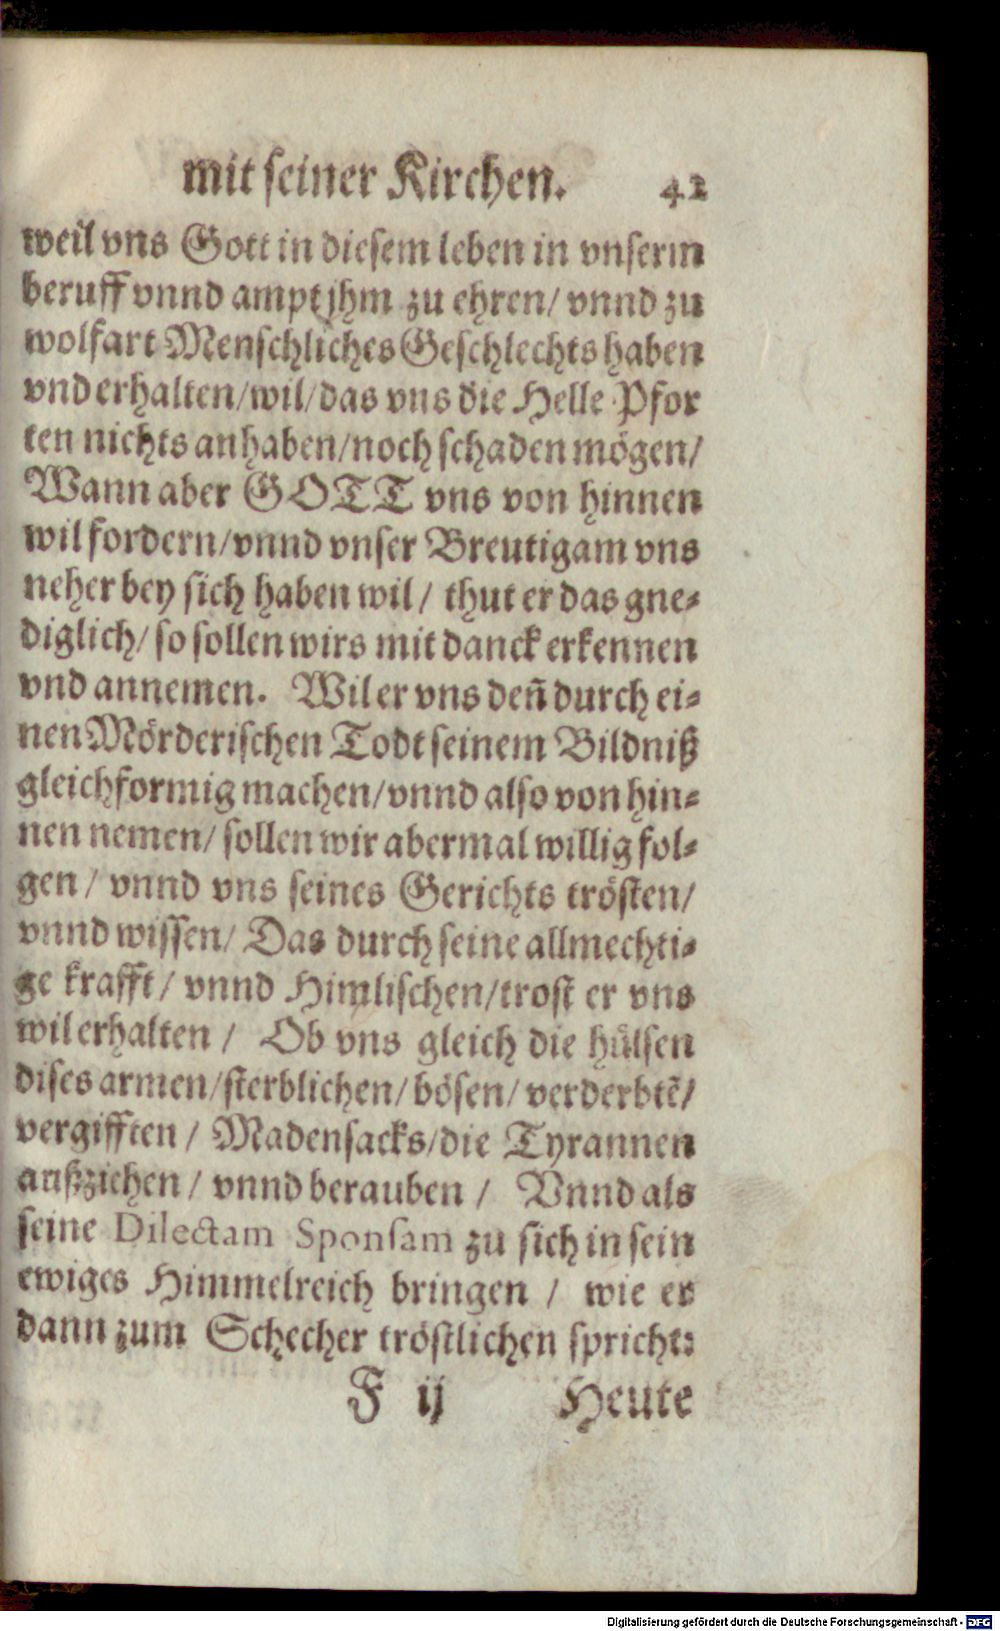 mit seiner Kirchen. 42
weil vns Gott in diesem leben in vnserm
beruff vnnd ampt jhm zu ehren/ vnnd zu
wolfart Menschliches Geschlechts haben
vnd erhalten/wil/das vns die Helle Pfor
ten nichts anhaben/noch schaden mögen/
Wann aber GOTT vns von hinnen
wil fordern/vnnd vnser Breutigam vns
neher bey sich haben wil/ thut er das gne⸗
diglich/ so sollen wirs mit danck erkennen
vnd annemen. Wil er vns deñ durch ei⸗
nen Mörderischen Todt seinem Bildniß
gleichformig machen/vnnd also von hin⸗
nen nemen/ sollen wir abermal willig fol⸗
gen / vnnd vns seines Gerichts trösten/
vnnd wissen/ Das durch seine allmechti⸗
ge krafft/ vnnd Himlischen/trost er vns
wil erhalten / Ob vns gleich die hülsen
dises armen/sterblichen/ bösen/ verderbtẽ/
vergifften / Madensacks/die Tyrannen
außziehen / vnnd berauben / Vnnd als
seine Dilectam Sponsam zu sich in sein
ewiges Himmelreich bringen / wie er
dann zum Schecher tröstlichen spricht:
F ij Heute
Digitalisierung gefördert durch die Deutsche Forschungsgemeinschaft - DFG